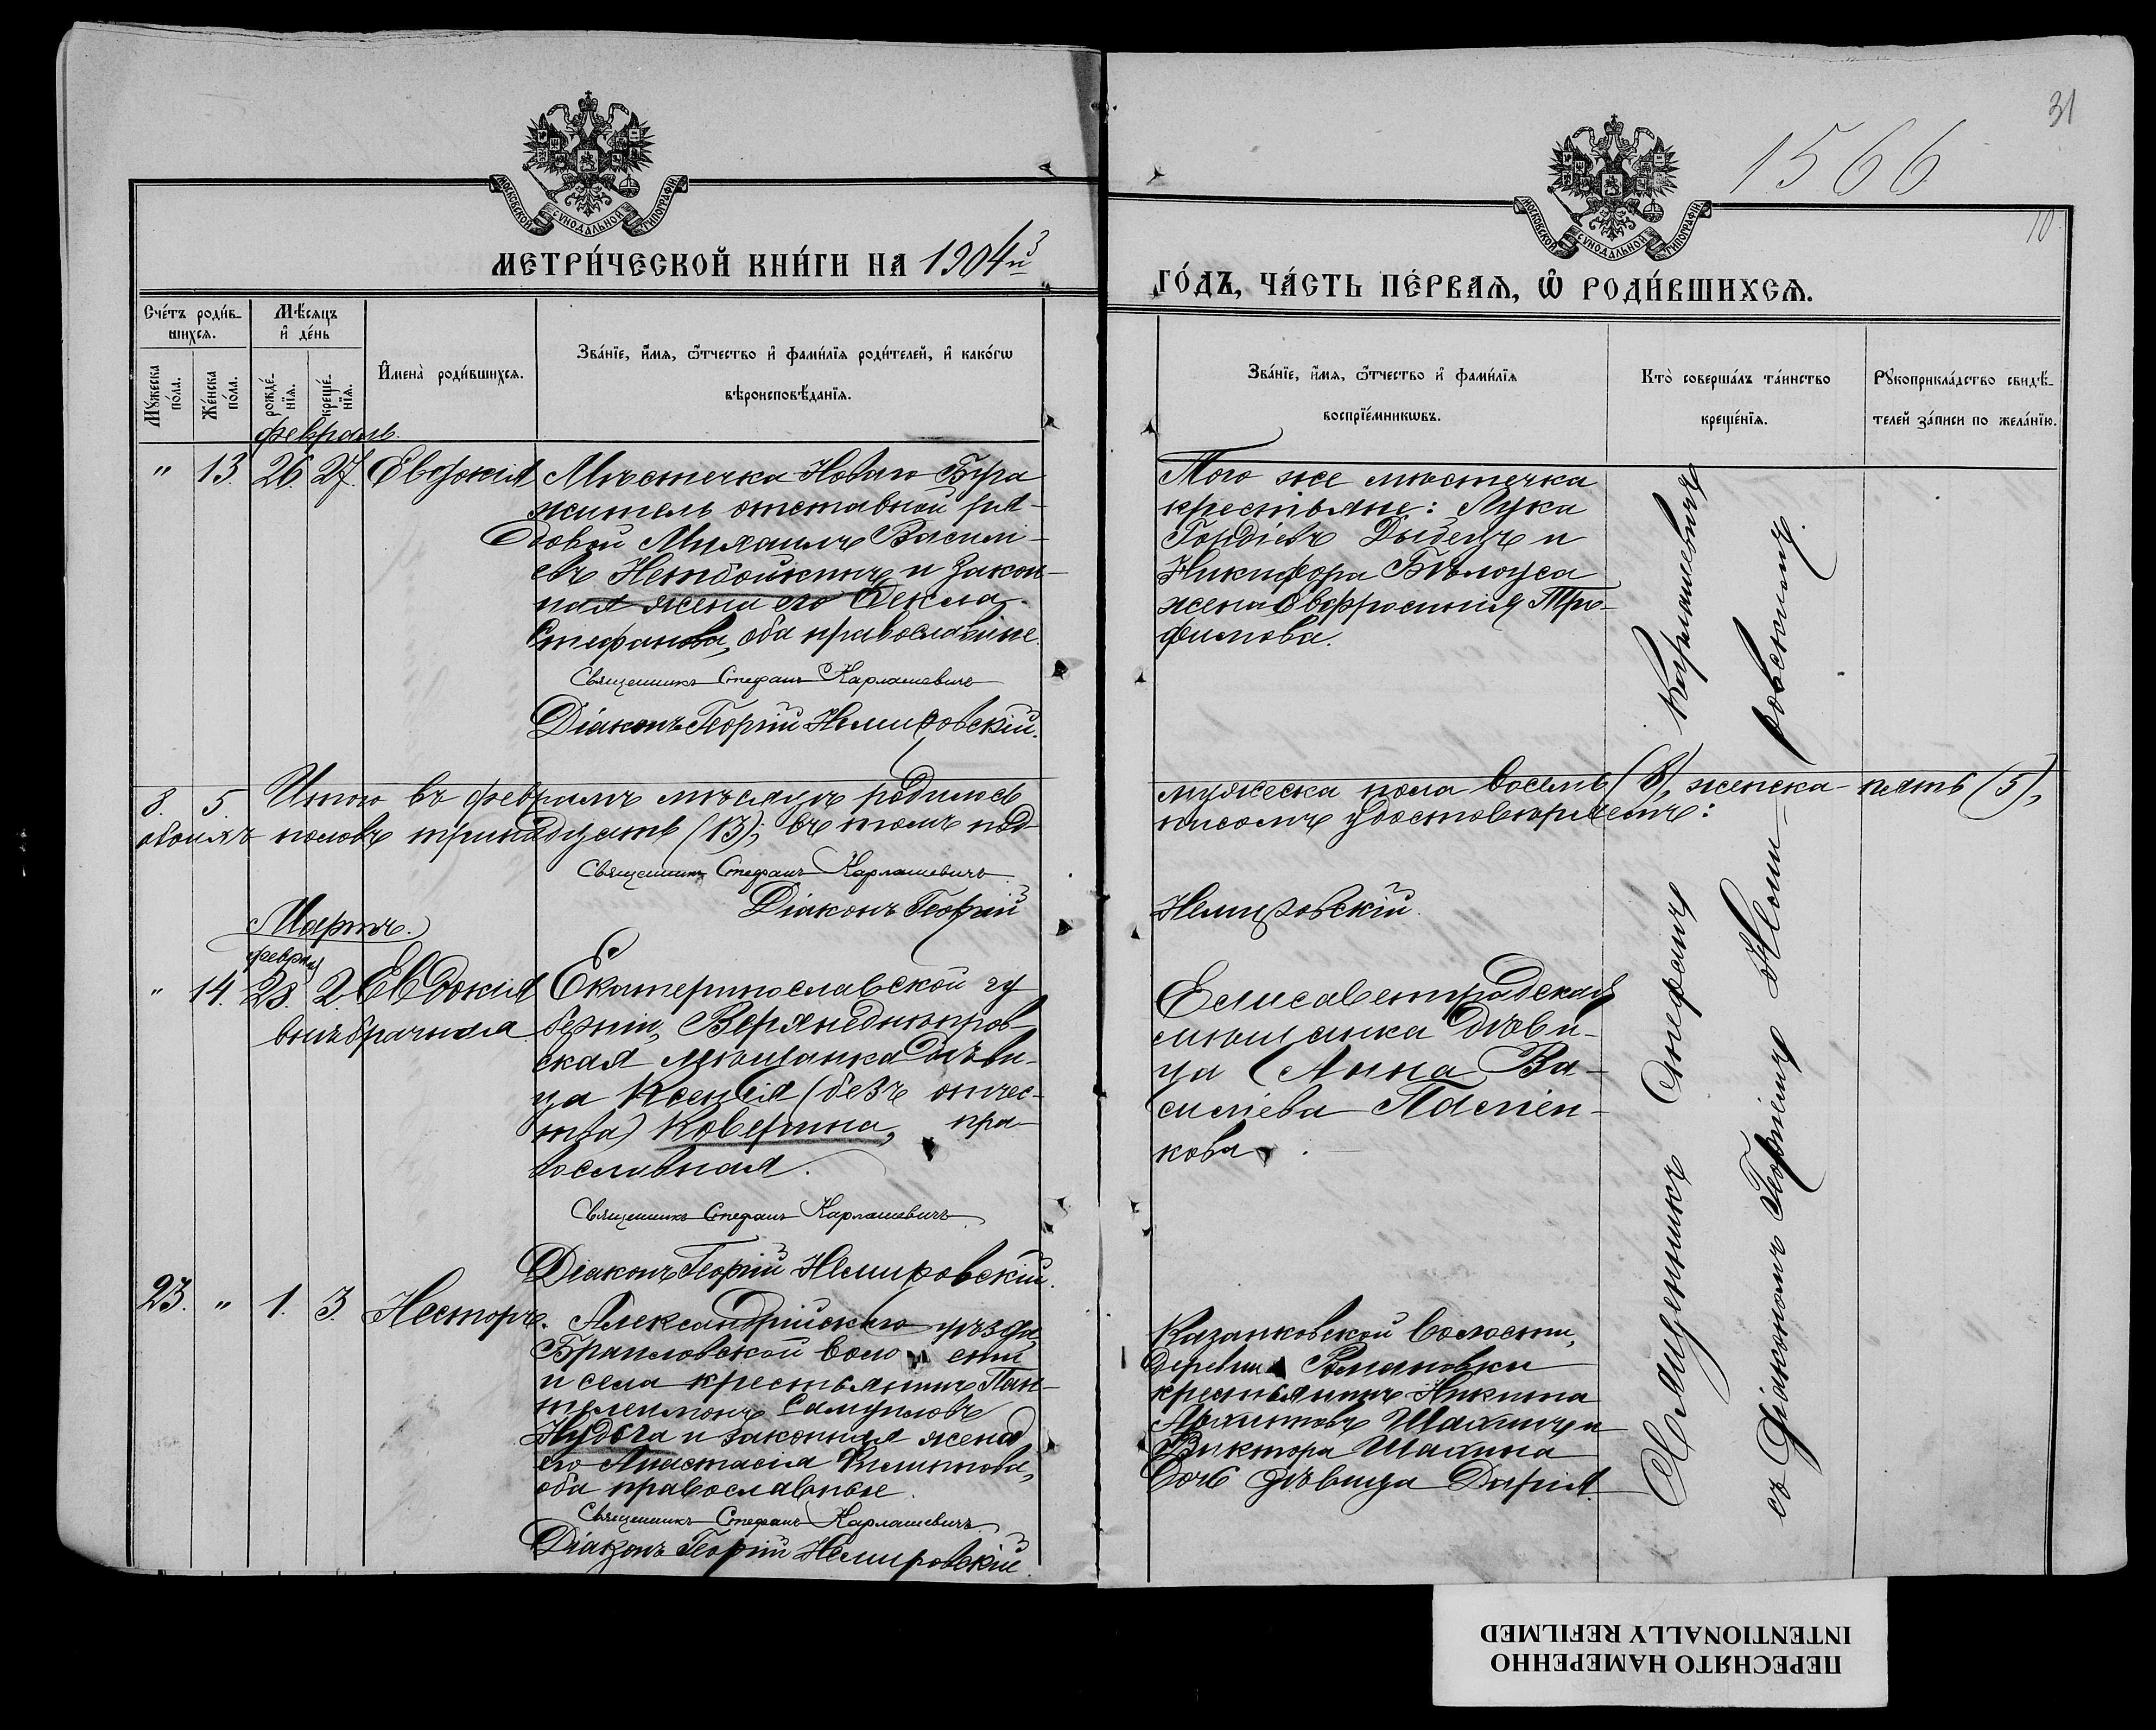 31
1566
10
МОСКОВСКОЙ СУНОДАЛЬНОЙ ТИПОГРАФІИ
МОСКОВСКОЙ СУНОДАЛЬНОЙ ТИПОГРАФІИ
МЕТРИ́ЧЕСКОЙ КНИ́ГИ НА 1904й
ГО́ДЪ, ЧА́СТЬ ПЕ́РВАѦ, Ѽ РОДИ́ВШИХСѦ.
Сче́тъ роди́в-
шихся.
Мѣ́сяцъ
и де́нь
Мꙋжеска
по́ла.
Же́нска
по́ла.
рожде́-
нїя.
креще́-
нїя.
Имена̀ роди́вшихся.
Зва́нїе, и́мя, ѻ҆́тчество и фами́лїя роди́телей, и како́гѡ
вѣроисповѣ́данїя.
Зва́нїе, и́мя, ѻ҆́тчество и фами́лїя
воспрїе́мникѡвъ.
Кто̀ соверша́лъ та́инство
креще́нїя.
Рꙋкоприкла́дство свидѣ́-
телей за́писи по жела́нїю.
Февраль.
" 13. 26. 27. Евдокія
Мѣстечка Новаго Буга
житель отставной ря-
довой Михаилъ Васили-
евъ и закон-
ная жена его Ѳекла
Стефанова, оба православные.
Священникъ Стефанъ Карлашевичъ
Діаконъ Георгій Немировскій.
Того же мѣстечка
крестьяне: Лука
Гордіевъ и
Никифора Бѣлоуса
жена Евфросинія Тро-
фимова.
8. 5. Итого въ февралѣ мѣсяцѣ родилось
мужеска пола восемь (8), женска - пять (5),
обоихъ половъ тринадцать (13); въ томъ под-
писомъ удостовѣряемъ:
Священникъ Стефанъ Карлашевичъ
Діаконъ Георгій
Немировскій.
Мартъ.
Февраля
" 14. 28. 2. Евдокія
внѣбрачная
Екатеринославской гу
берніи, Верхнеднѣпров-
ская мѣщанка дѣви-
ца Ксенія (безъ отчес-
тва) Коверина, пра-
вославная.
Священникъ Стефанъ Карлашевичъ
Діаконъ Георгій Немировскій.
Елисаветградская
мѣщанка дѣви-
ца Анна Ва-
силіева
кова.
23. " 1. 3. Несторъ.
Александрійскаго уѣзда,
Браиловской воло сти
и села крестьянинъ Пан-
телеимонъ Самуиловъ
Нудьга и законная жена
его Анастасія Филиппова,
оба православные.
Священникъ Стефанъ Карлашевичъ
Діаконъ Георгій Немировскій.
Казанковской волости,
деревни Романовки
крестьянинъ Никита
Шахинъ и
Виктора Шахина
дочь дѣвица Дарія.
Священникъ Стефанъ Карлашевичъ
съ діакономъ Георгіемъ Неми-
ровскимъ.
ПЕРЕСНЯТО НАМЕРЕННО
INTENTIONALLY REFILMED